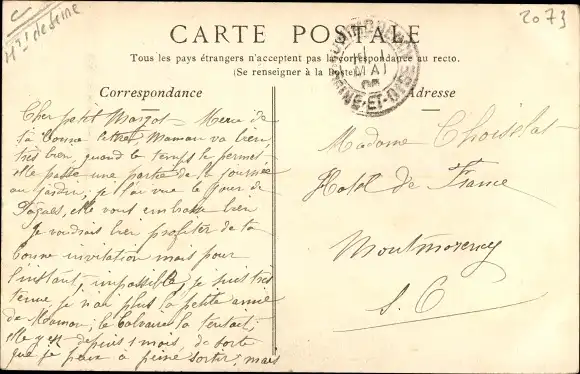 Hts de Seine
2073
CARTE POSTALE
Tous les pays étrangers n'acceptent pas la correspondance au recto.
(Se renseigner à la Poste)
Correspondance
Adresse
MAI
SEINE-ET-OISE
Cher petit Margot - Merci de
ta bonne lettre, Maman va bien,
très bien, quand le temps le permet
elle passe une partie de la journée
au jardin; je l'ai vue le jour de
Pâques, elle vous embrasse bien
Je voudrais bien profiter de ta
bonne invitation mais pour
l'instant, impossible, je suis très
tenue, je n'ai plus la petite amie
de Maman, le Calvaire la tentait,
elle y est depuis 1 mois, de sorte
que je peux à peine sortir, mais
Madame Choiselat
Hotel de France
Montmorency
S. O